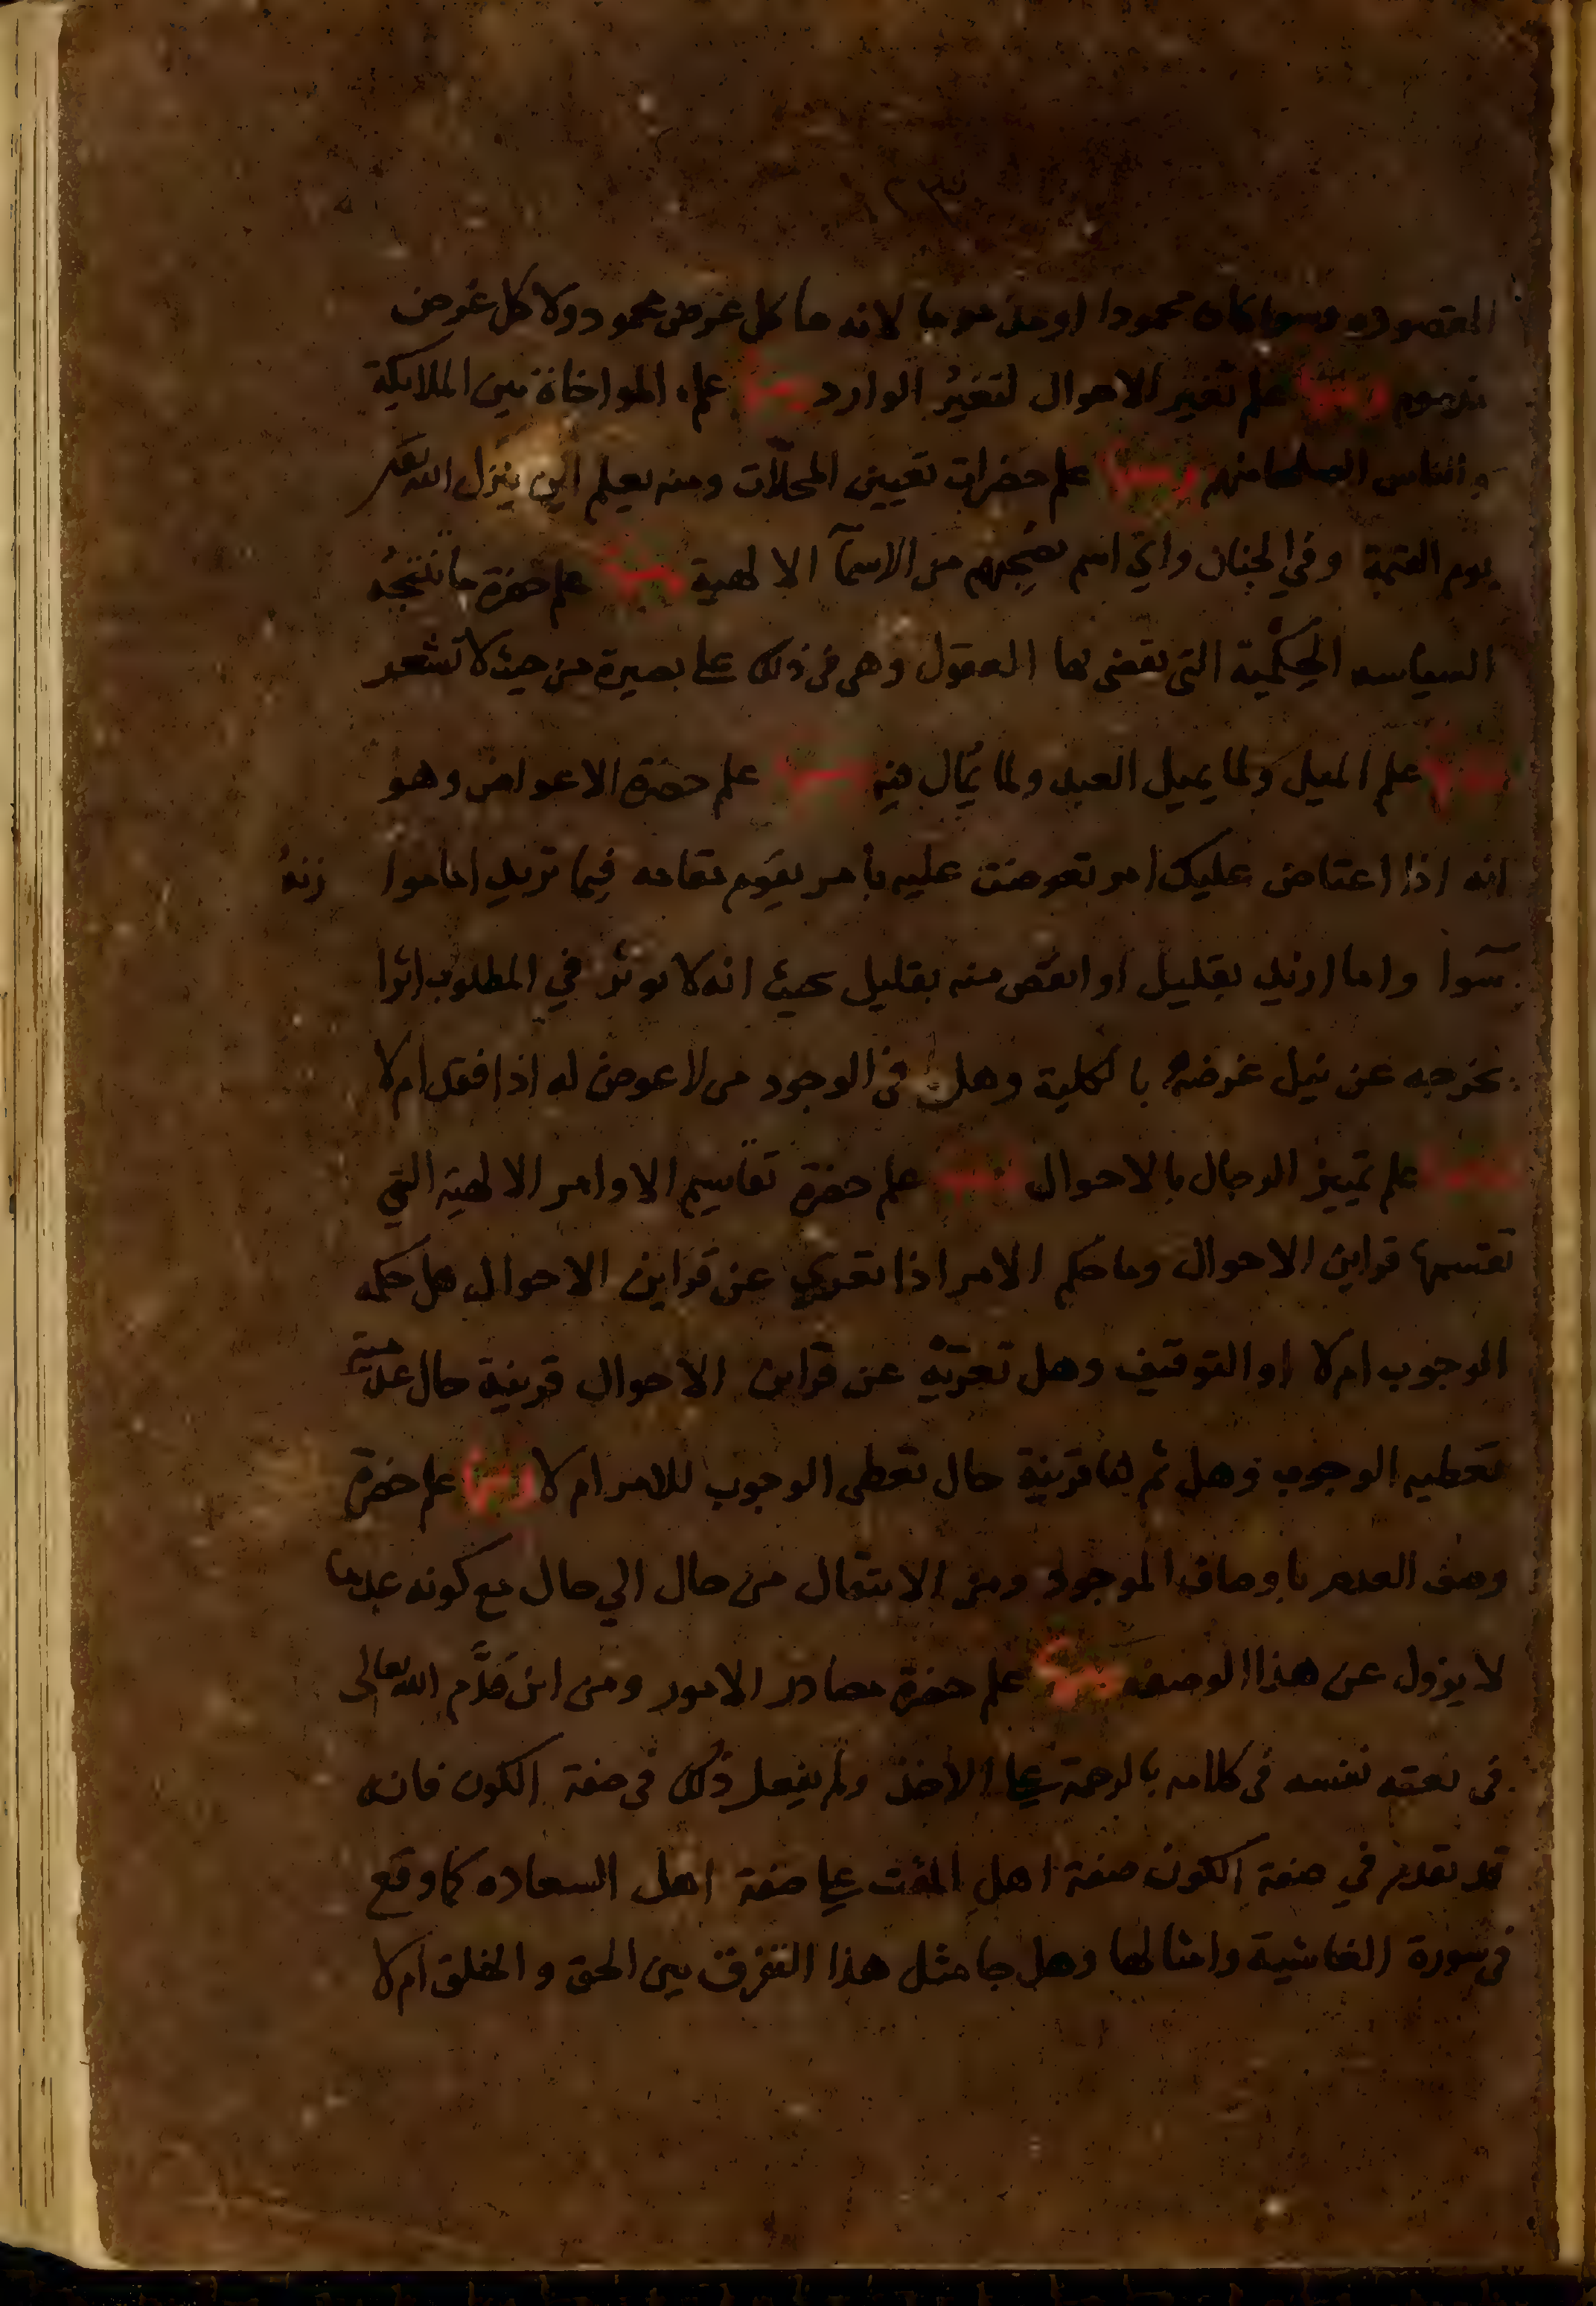 المقصوده وسوا كان محمودا او مذموما لانه ما كل غرض محمود ولا كل غرض
مذموم ومنها علم تغير الاحوال لتغيُّر الوارد ومنها علم المواخاة بين الملايكة
والناس الصلحا منهم ومنها علم حضرات تعيين المحلّات ومنه يعلم اين ينزل الله بهم
يوم القيمة وفي الجنان واي اسم يصحبهم من الاسمآ الالهية ومنها علم حضرة ما تنتجه
السياسه الحِكَمية التى تقضى بها العقول وهى فى ذلك على بصيرة من حيث لا تشعر
ومنها علم الميل ولما يميل العبد ولما يُمال فيه ومنها علم حضرة الاعواض وهو
انه اذا اعتاض عليك امر تعوضت عليه بأمر يقوم مقامه فيما تريد اما موا زنهُ
سَوآا واما ازيد بقليل او انقص منه بقليل بحيث انه لا يوثر في المطلوب اثرا
يخرجه عن نيل غرضه بالكلية وهل فى الوجود من لا عوض له اذا فقد ام لا
ومنها علم تمييز الرجال بالاحوال ومنها علم حضرة تقاسيم الاوامر الالهية التي
تقسمها قراين الاحوال وما حكم الامر اذا تعري عن قراين الاحوال هل حكمه
الوجوب ام لا او التوقيف وهل تعرّيه عن قراين الاحوال قرينة حال عدمية
تعطيه الوجوب وهل ثم هنا قرينة حال تعطى الوجوب للامر ام لا ومنها علم حضرة
وصف العدم باوصاف الموجود ومن الانتقال من حال الي حال مع كونه عدما
لا يزول عن هذا الوصف ومنها علم حضرة مصادر الامور ومن اين قدَّم الله تعالى
فى نعته نفسه فى كلامه بالرحمة على الاخذ ولم يفعل ذلك فى صفة الكون فانه
قد تقدم في صفة الكون صفة اهل المقت على صفة اهل السعاده كما وقع
فى سورة الغاشية وامثالها وهل جا مثل هذا التفرق بين الحق والخلق ام لا